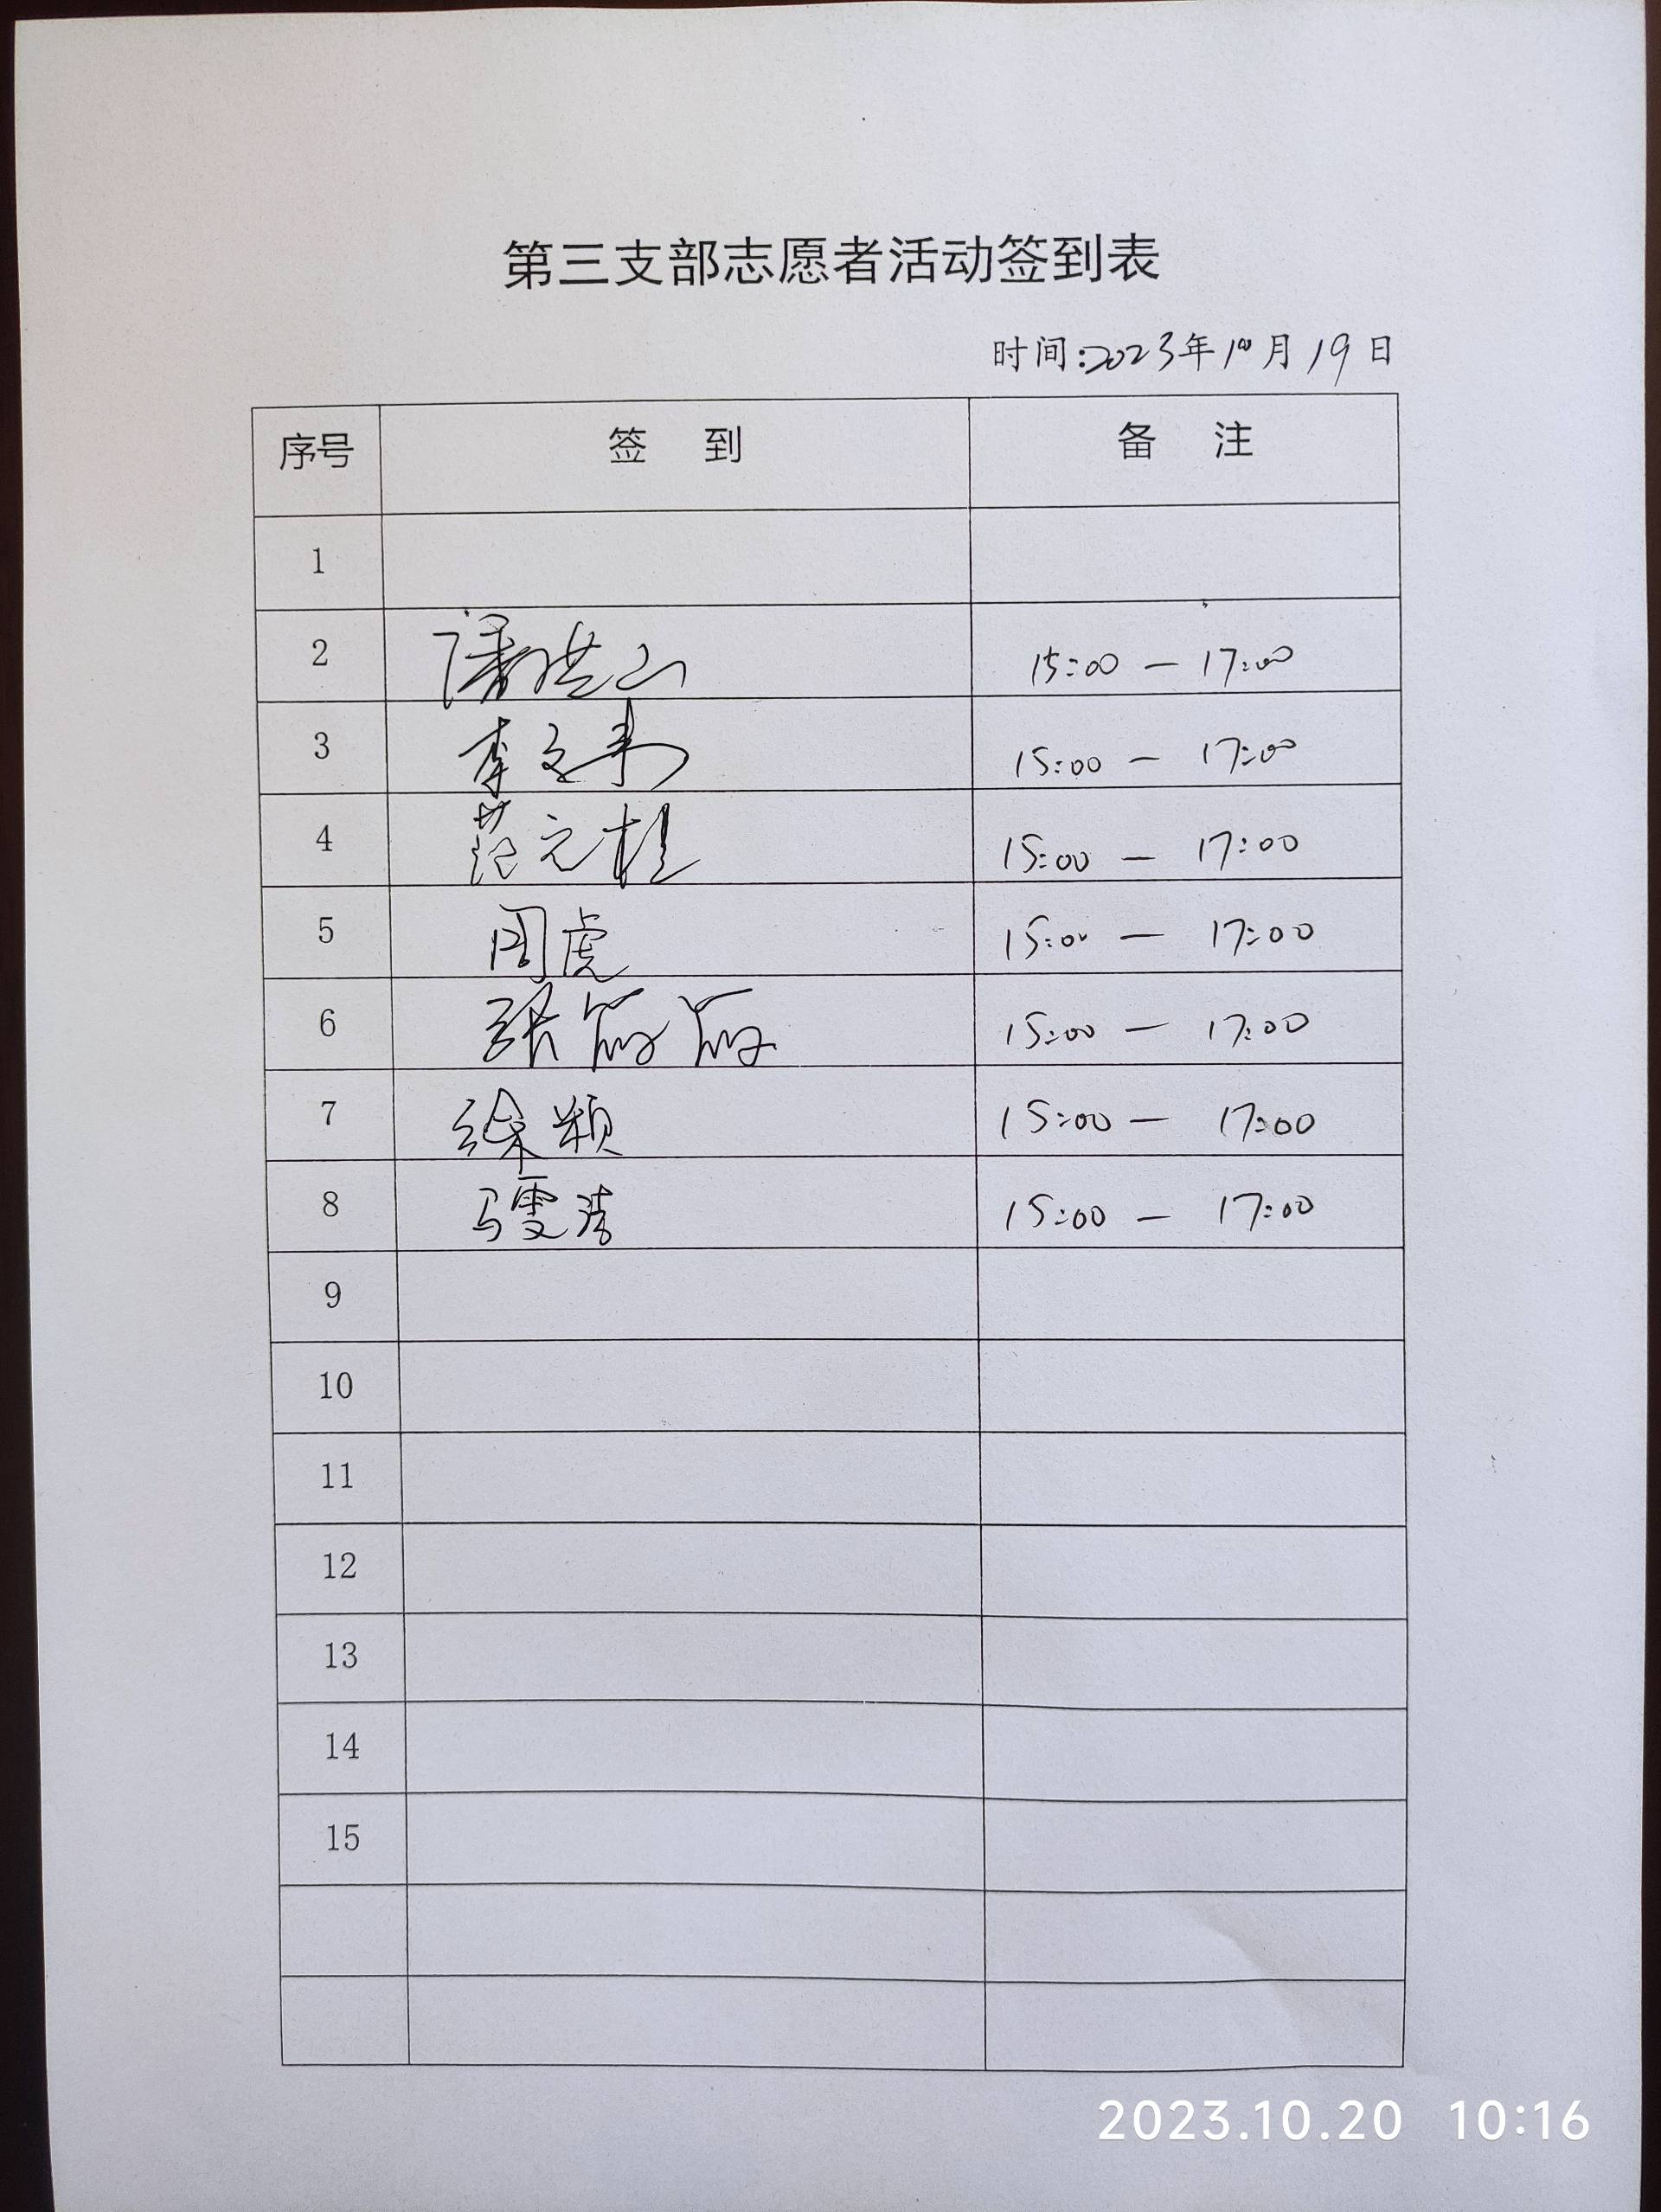 第三支部志愿者活动签到表
时间:2023年10月19日
序号 签 到 备 注
1
2 潘洪山 15:00 — 17:00
3 李文 15:00 — 17:00
4 范元桂 15:00 — 17:00
5 周虎 15:00 — 17:00
6 张 15:00 — 17:00
7 徐颖 15:00 — 17:00
8 马雯清 15:00 — 17:00
9
10
11
12
13
14
15
2023.10.20 10:16